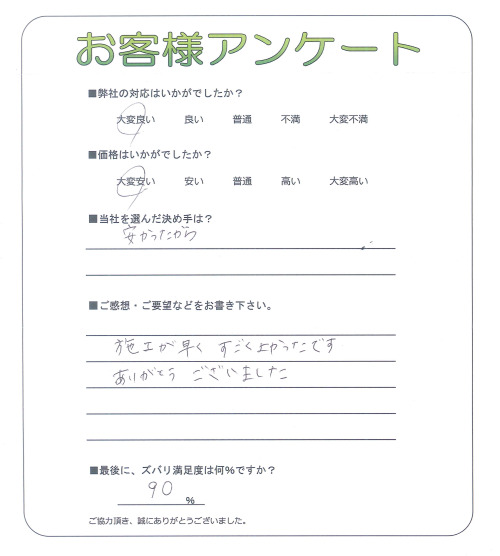 お客様アンケート
■弊社の対応はいかがでしたか？
大変良い 良い 普通 不満 大変不満
■価格はいかがでしたか？
大変安い 安い 普通 高い 大変高い
■当社を選んだ決め手は？
安かったから
■ご感想・ご要望などをお書き下さい。
施工が早く すごく よかったです
ありがとう ございました
■最後に、ズバリ満足度は何%ですか？
90 %
ご協力頂き、誠にありがとうございました。